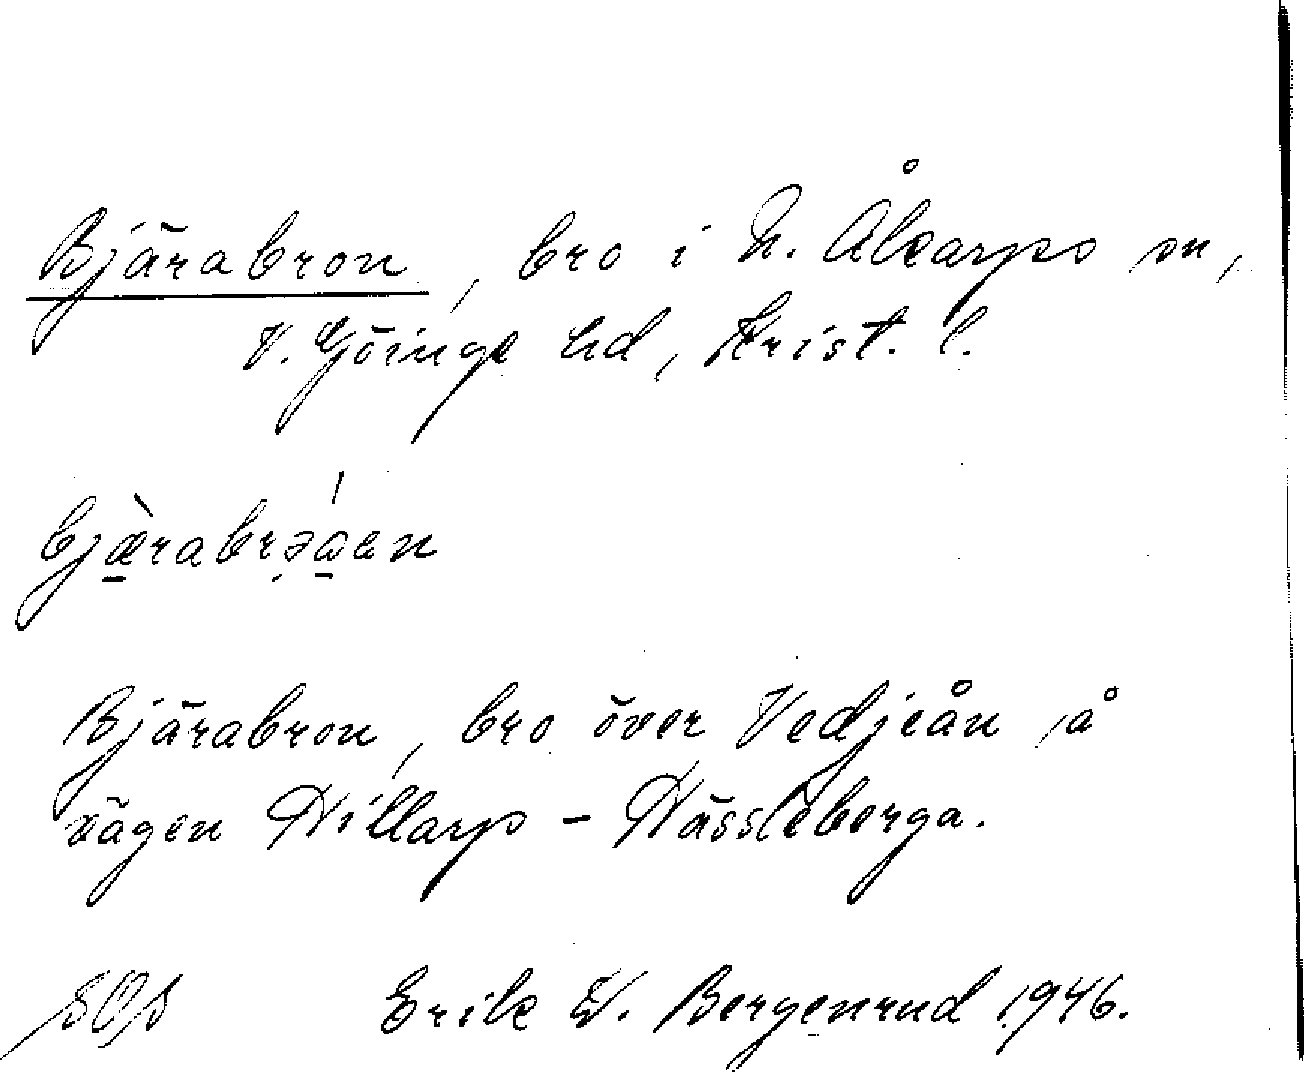 Bjärabron, bro i N. Åkarps sn,
V. Göinge hd, Krist. l.
bjæ̀rabrəáen
Bjärabron, bro över Vedjeån å
vägen Hillarp - Nässleberga.
SOS Erik W. Bergenrud 1946.